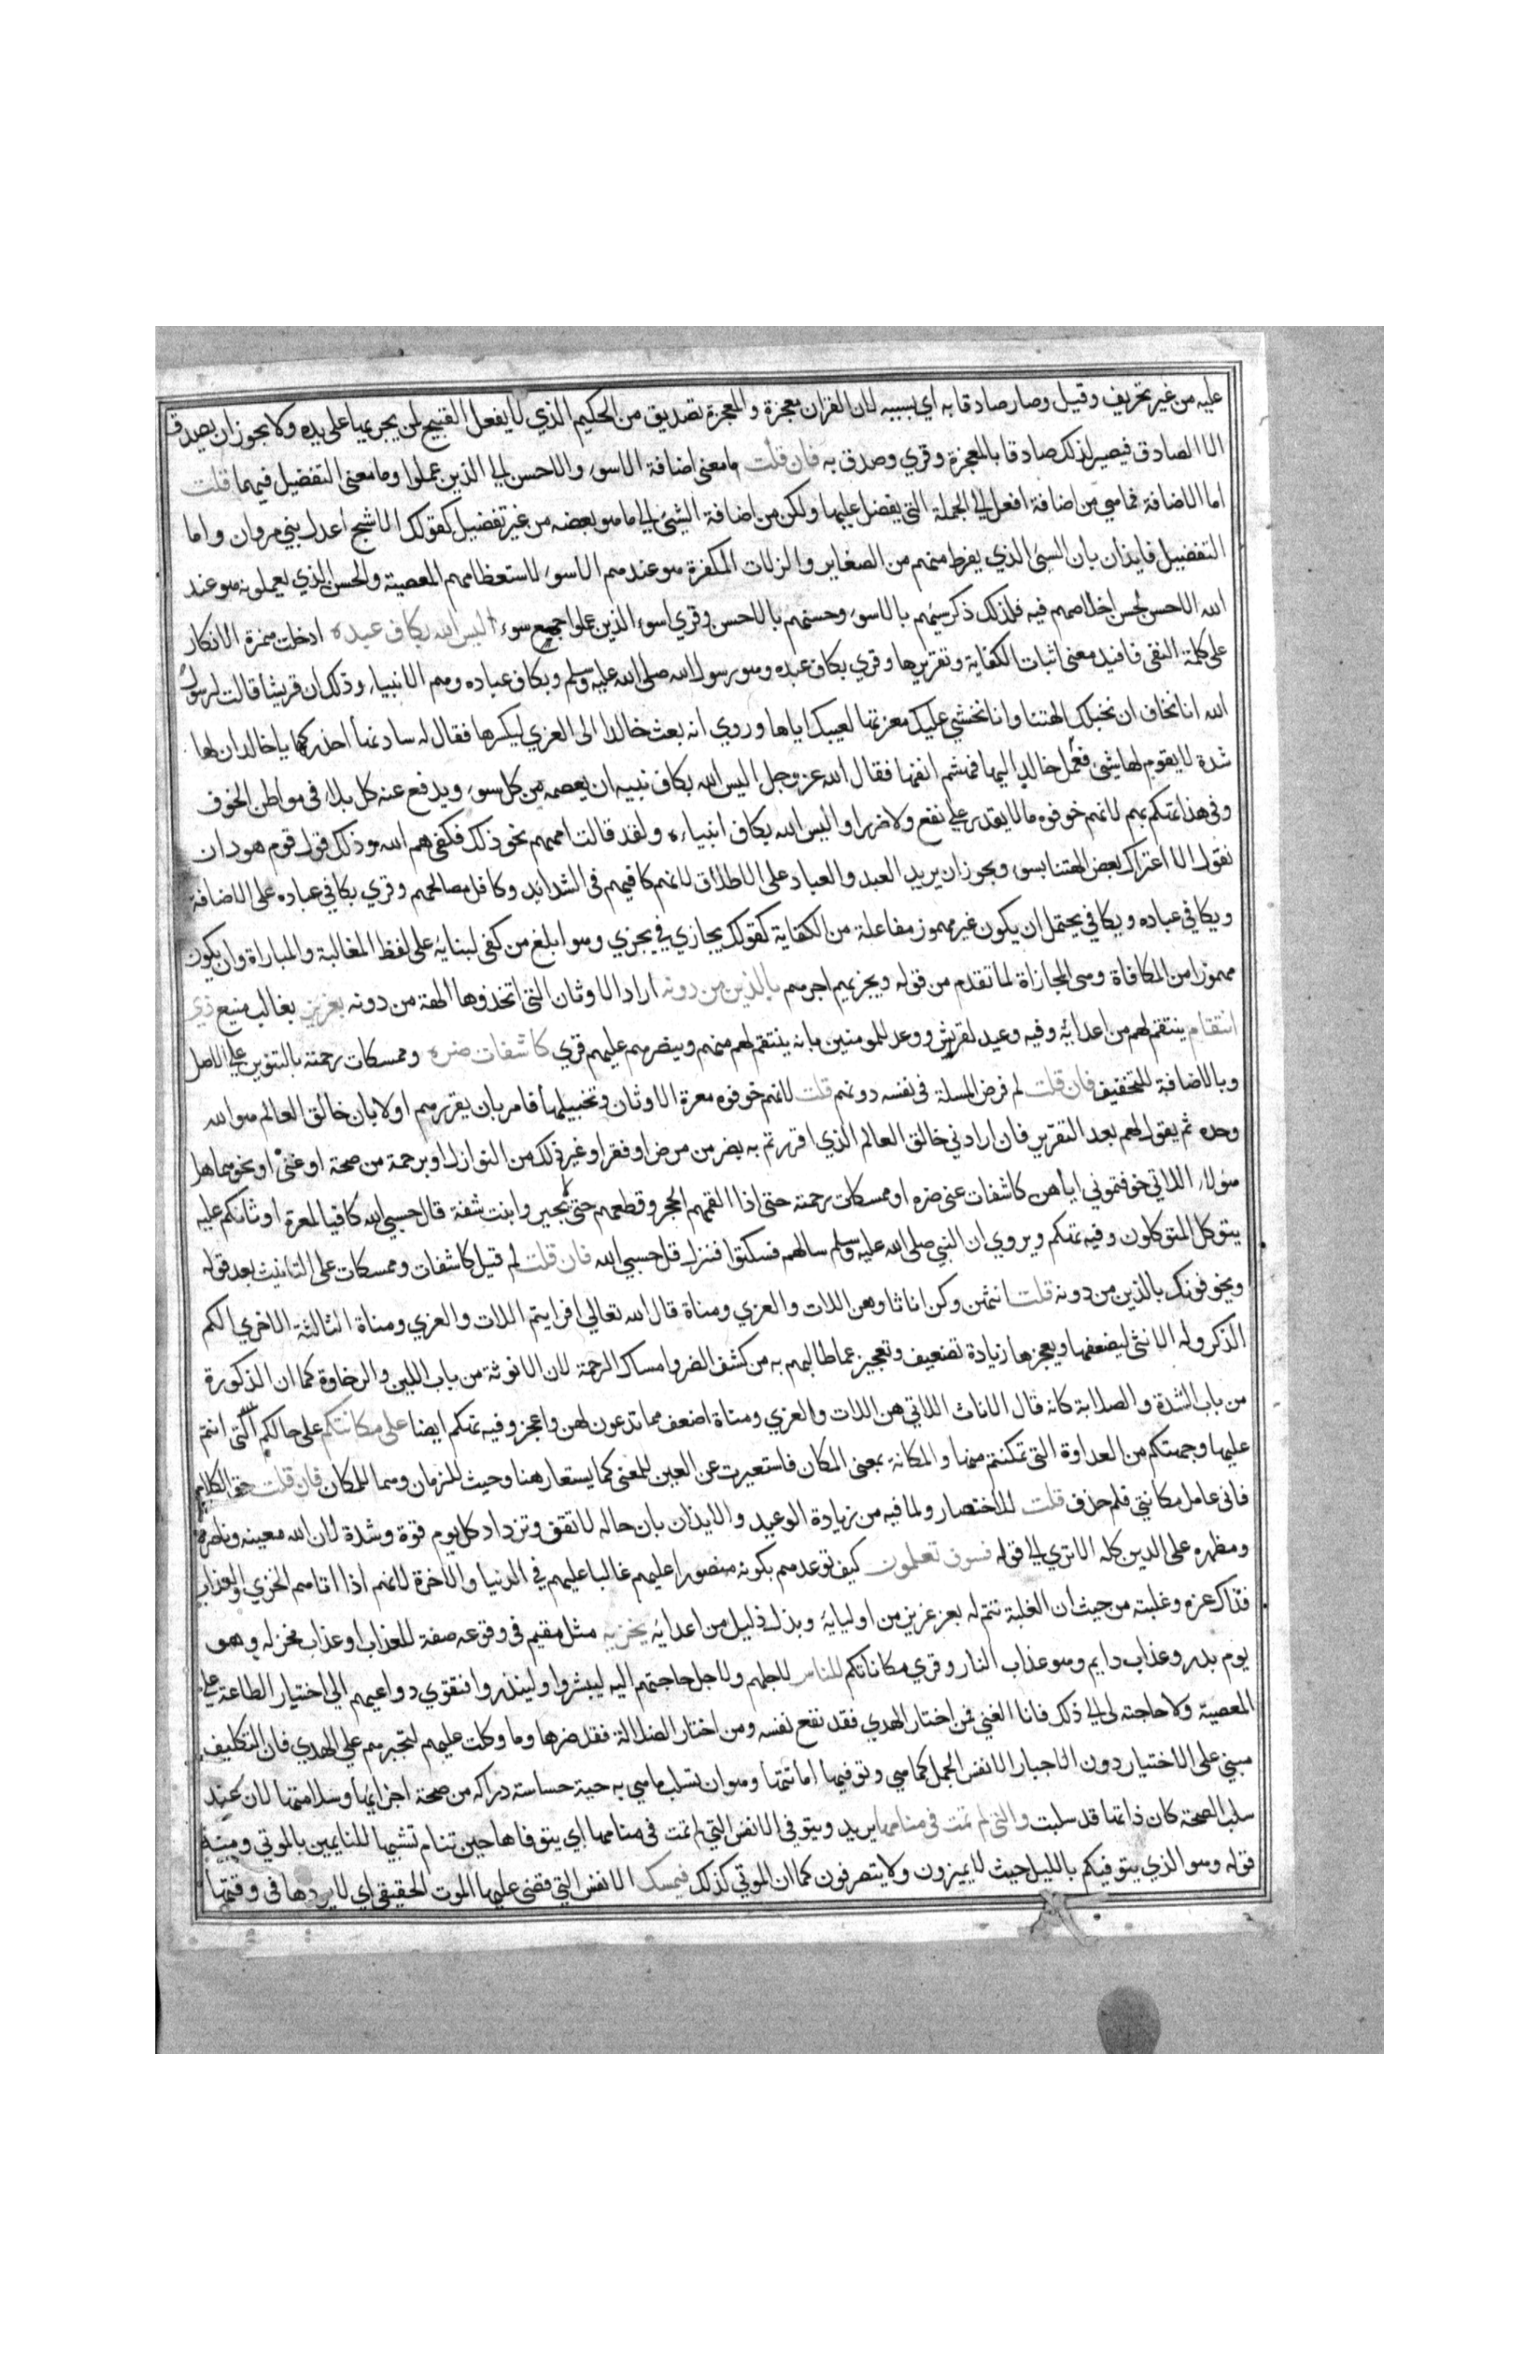 عليه من غير تحريف وقيل وصار صادقا به اي بسببه لان القران معجزة والمعجزة تصديق من الحكيم الذي لا يفعل القبيح لمن يجريها على يده ولا يجوز ان يصدق
الا الصادق فيصير لذلك صادقا بالمعجزة وقري وصدق به فان قلت ما معنى اضافة الاسوء والاحسن الي الذين عملوا وما معنى التفضيل فيهما قلت
اما الاضافة فما هي من اضافة افعل الي الجملة التي يفضل عليها ولكن من اضافة الشئ الي ما هو بعضه من غير تفضيل كقولك الاشج اعدل بني مروان واما
التفضيل فايذان بان السيئ الذي يفرط منهم من الصغاير والزلات المكفرة هو عندهم الاسوء لاستعظامهم المعصية والحسن الذي يعملونه هو عند
الله الاحسن لحسن اخلاصهم فيه فلذلك ذكر سيئهم بالاسوء وحسنهم بالاحسن وقري اسوء الذين عملوا جميع سوء اليس الله بكاف عبده ادخلت همزة الانكار
على كلمة النفي فافيد معنى اثبات الكفاية وتقريرها وقري بكاف عبده وهو رسول الله صلى الله عليه وسلم وبكاف عباده وهم الانبياء وذلك ان قريشا قالت لرسول
الله انا نخاف ان تخبلك الهتنا وانا نخشي عليك معرتها لعيبك اياها وروي انه بعث خالدا الى العزي ليكسرها فقال له سادنها احذركها يا خالد ان لها
شدة لا يقوم لها شئ فعمل خالد اليها فهشم انفها فقال الله عز وجل اليس الله بكاف نبيه ان يعصمه من كل سوء ويدفع عنه كل بلاء في مواطن الخوف
وفي هذا تهكم بهم لانهم خوفوه ما لا يقدر علي نفع ولا ضر او اليس الله بكاف انبياءه ولقد قالت اممهم نحو ذلك فكفى هم الله وذلك قول قوم هود ان
نقول الا اعتراك بعض الهتنا بسوء ويجوز ان يريد العبد والعباد على الاطلاق لانهم كافيهم في الشدايد وكافل مصالحهم وقري بكافي عباده على الاضافة
ويكافي عباده ويكافي يحتمل ان يكون غير مهموز مفاعلة من الكفاية كقولك يجازي في يجزي وهو ابلغ من كفى لبنايه على لفظ المغالبة والمباراة وان يكون
مهموزا من المكافاة وهي المجازاة لما تقدم من قوله ويجزيهم اجرهم بالذين من دونه اراد الاوثان التي اتخذوها الهة من دونه بعزيز بغالب منيع ذي
انتقام ينتقم لهم من اعدايه وفيه وعيد لقريش ووعد للمومنين بانه ينتقم لهم منهم وينصرهم عليهم قري كاشفات ضره وممسكات رحمته بالتنوين على الاصل
وبالاضافة للتخفيف فان قلت لم فرض المسلة في نفسه دونهم قلت لانهم خوفوه معرة الاوثان وتخبيلها فامر بان يقررهم اولا بان خالق العالم هو الله
وحده ثم يقول لهم بعد التقرير فان ارادني خالق العالم الذي اقررتم به بضر من مرض او فقر او غير ذلك من النوازل او برحمة من صحة او غنى او نحوهما هل
هؤلاء اللاتي خوفتموني اياهن كاشفات عني ضره او ممسكات رحمته حتى اذا القمهم الحجر وقطعهم حتى لا يحيروا ببنت شفة قال حسبي الله كافيا لمعرة اوثانكم عليه
يتوكل المتوكلون وفيه تهكم ويروي ان النبي صلى الله عليه وسلم سالهم فسكتوا فنزل قل حسبي الله فان قلت لم قيل كاشفات وممسكات على التانيث بعد قوله
ويخوفونك بالذين من دونه قلت انثهن وكن اناثا وهن اللات والعزي ومناة قال الله تعالي افرايتم اللات والعزي ومناة الثالثة الاخري الكم
الذكر وله الانثى ليضعفها ويعجزها زيادة تضعيف وتعجيز عما طالبهم به من كشف الضر وامساك الرحمة لان الانوثة من باب اللين والرخاوة كما ان الذكورة
من باب الشدة والصلابة كانه قال الاناث اللاتي هن اللات والعزي ومناة اضعف مما تدعون لهن واعجز وفيه تهكم ايضا على مكانتكم على حالكم التي انتم
عليها وجهتكم من العداوة التي تمكنتم منها والمكانة بمعنى المكان فاستعيرت عن العين للمعنى كما يستعار هنا وحيث للزمان وهما للمكان فان قلت حق الكلام
فاني عامل مكانتي فلم حذف قلت للاختصار ولما فيه من زيادة الوعيد والايذان بان حاله لا تقف وتزداد كل يوم قوة وشدة لان الله معينه وناصره
ومظهره على الدين كله الا تري الي قوله فسوف تعلمون كيف توعدهم بكونه منصورا عليهم غالبا عليهم في الدنيا والاخرة لانهم اذا اتاهم الخزي والعذاب
فذاك عزه وغلبته من حيث ان الغلبة تتم له بعز عزيز من اوليايه وبذل ذليل من اعدايه يخزيه مثل مقيم في وقوعه صفة للعذاب او عذاب مخز له وهو
يوم بدر وعذاب دايم وهو عذاب النار وقري مكاناتكم للناس لاجلهم ولاجل حاجتهم اليه ليبشروا ولينذروا فتقوي دواعيهم الى اختيار الطاعة على
المعصية ولا حاجة لي الي ذلك فانا الغني فمن اختار الهدي فقد نفع نفسه ومن اختار الضلالة فقد ضرها وما وكلت عليهم لتجبرهم علي الهدي فان التكليف
مبني على الاختيار دون الاجبار الانفس الجمل كما هي وتوفيها اماتتها وهو ان تسلب ما هي به حية حساسة دراكه من صحة اجزايها وسلامتها لان عند
سلب الصحة كان ذاتها قد سلبت والتي لم تمت في منامها يريد ويتوفى الانفس التي لم تمت في منامها اي يتوفاها حين تنام تشبيها للنايمين بالموتي ومنه
قوله وهو الذي يتوفيكم بالليل حيث لا يميزون ولا يتصرفون كما ان الموتي كذلك فيمسك الانفس التي قضى عليها الموت الحقيقي اي لا يردها في وقتها